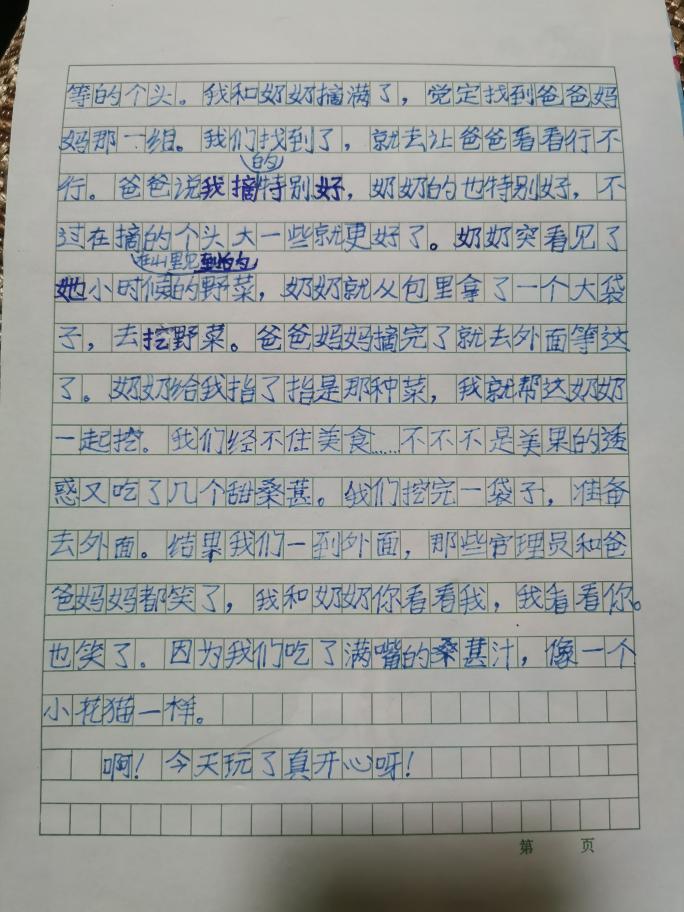 等的个头。我和奶奶摘满了，觉定找到爸爸妈
妈那一组。我们找到了，就去让爸爸看看行不
的
行。爸爸说我摘特别好，奶奶的也特别好，不
过在摘的个头大一些就更好了。奶奶突看见了
在山里见到的
她小时候的野菜，奶奶就从包里拿了一个大袋
子，去挖野菜。爸爸妈妈摘完了就去外面等这
了。奶奶给我指了指是那种菜，我就帮这奶奶
一起挖。我们经不住美食……不不不是美果的透
惑又吃了几个甜桑葚。我们挖完一袋子，准备
去外面。结果我们一到外面，那些官理员和爸
爸妈妈都笑了，我和奶奶你看看我，我看看你。
也笑了。因为我们吃了满嘴的桑葚汁，像一个
小花猫一样。
啊！今天玩了真开心呀！
第 页